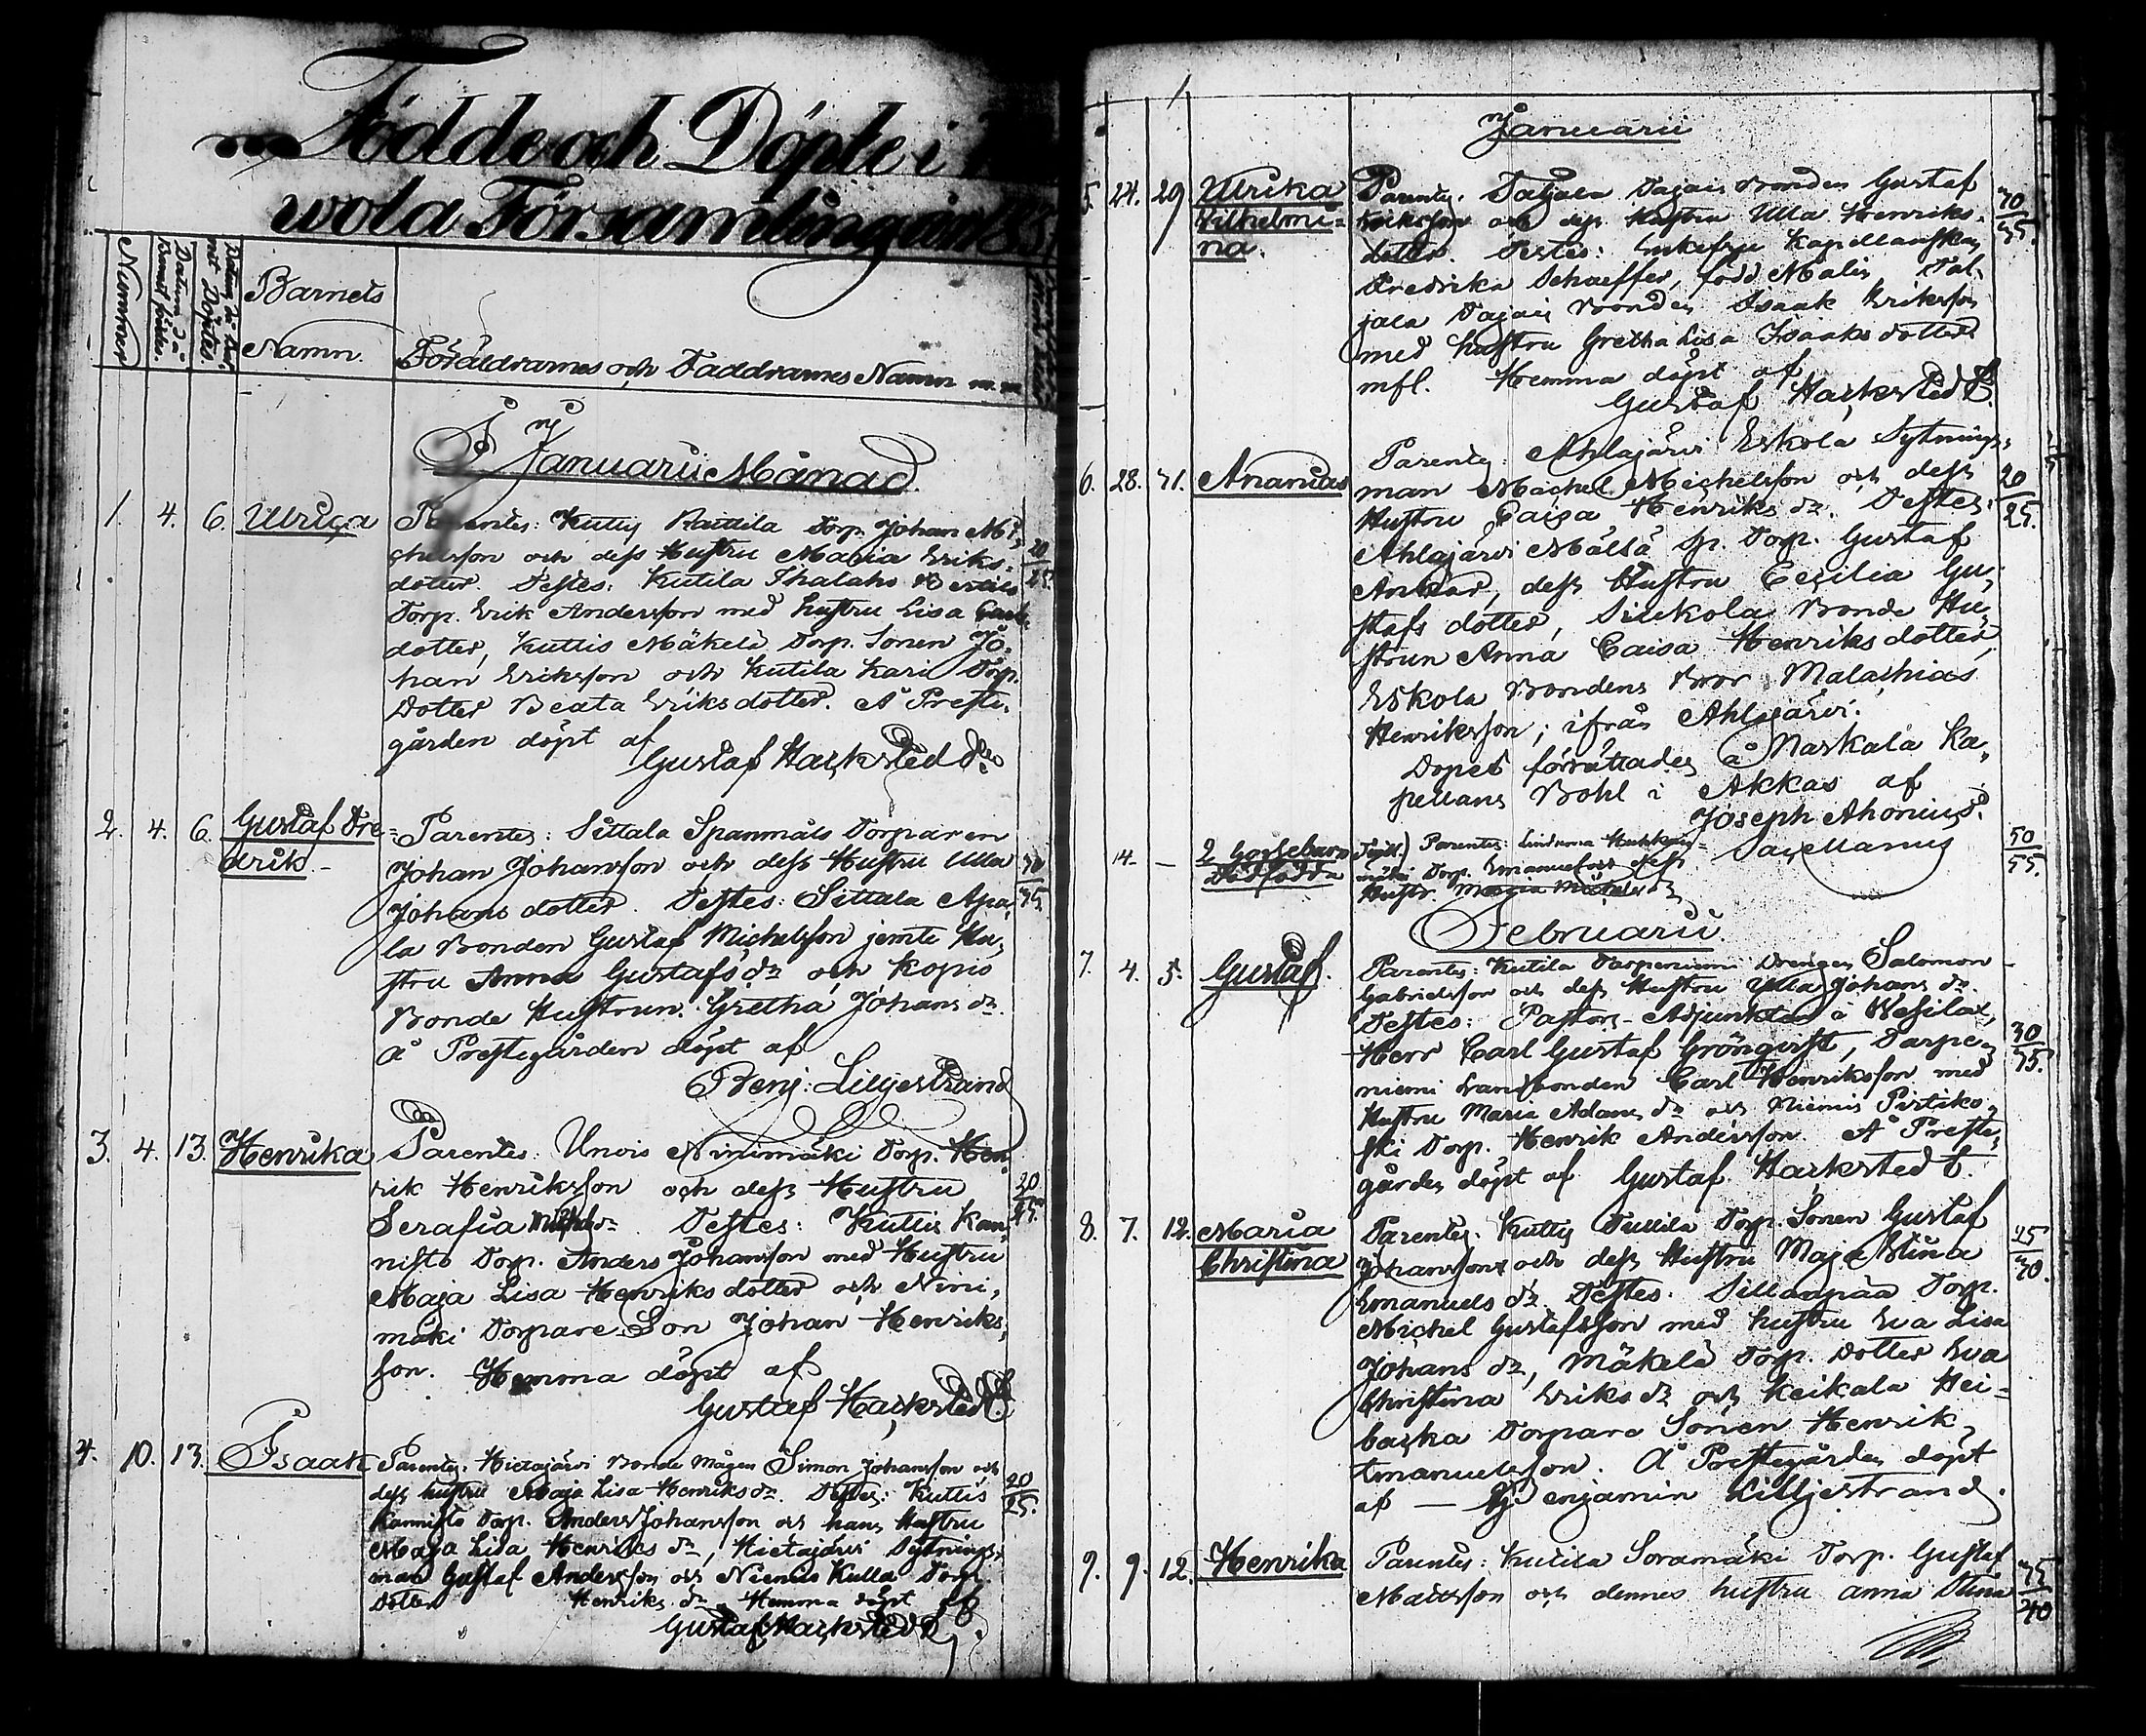 Födde och Döpte i
wola Församling år 183
Nummer
Datum då Barnet föddes.
Datum då det Döptes.
Barnets
Namn.
Föräldrarnes och Faddrarnes Namn m m
I Januarii Månad.
1. 4. 6. Ulrica
Parentes: Kuttis Raittila Torp. Johan Mi-
chelsson och dess Hustru Maria Eriks-
dotter. Testes: Kutila Ihalaho
Torp. Erik Andersson med hustru Lisa
dotter, Kuttis Mäkelä Torp. Sonen Jo-
han Eriksson och Kutila Kari Torp.
Dotter Beata Eriksdotter. Å Preste-
gården döpt af
Gustaf Hackstedt
20/25.
2. 4. 6. Gustaf Fre-
drik.
Parentes: Sittala Spannmäls Torparen
Johan Johansson och dess Hustru Ulla
Johans dotter. Testes: Sittala Apa-
la Bonden Gustaf Michelsson jemte Hu-
stru Anna Gustafs dr och Kopis
Bonde Hustrun Gretha Johans dr.
å Prestegården döpt af
Benj: Liljestrand
30/35.
3. 4. 13. Henrika
Parentes: Unois Ninimäki Torp. Hen-
rik Henriksson och dess Hustru
Serafia dr. Testes: Kuttis Kan-
nisto Torp. Anders Johansson med Hustru
Maja Lisa Henriks dotter och Nini-
mäki Torpare Son Johan Henriks-
son. Hemma döpt af
Gustaf Hackstedt.
20/25.
4. 10. 13. Isaak
Parentes: Hietajärvi Bonde Mågen Simon Johansson och
dess hustru Maja Lisa Henriks dr. Testes: Kuttis
Kannisto Torp. Anders Johansson och hans Hustru
Maja Lisa Henriks dr, Hietajärvi Sytnings-
man Gustaf Andersson och Niemis Kulla Torp.
Dotter Henriks dr. Hemma döpt af
Gustaf Hackstedt.
20/25.
1
Januarii
5. 24. 29 Ulrika
Wilhelmi-
na.
Parentes: Taljala Tajais Bonden Gustaf
Eriksson och dess Hustru Ulla Henriks-
dotter. Testes: Enkefru Kapellanskan
Fredrika Schaeffer, född Malin, Tal-
jala Tajais Bonden Isaak Eriksson
med hustru Gretha Lisa Isaaks dotter
mfl. Hemma döpt af
Gustaf Hackstedt.
30/35.
6. 28. 31. Ananias
Parentes: Ahlajärvi Eskola Sytnings-
man Michel Michelsson och dess
Hustru Caisa Henriks dr. Testes:
Ahlajärvi Torp. Gustaf
Ankar, dess Hustru Cecilia Gu-
stafs dotter, Silekola Bonde Hu-
strun Anna Caisa Henriks dotter,
Eskola Bondens Bror Malachias
Henriksson; ifrån Ahlajärvi.
Dopet förrättades å Naskala Ka-
pellans Bohl i Akkas af
Joseph Ahonius.
Sacellanus
20/25.
14. — 2 Gossebarn
Dödfödda
Parentes: Lindunna
mäki Torp. Emanuel och dess
Hustr. Maria
50/55.
Februarii.
7. 4. 5. Gustaf.
Parentes: Kutila Tarpeniemi Drengen Salomon
Gabrielsson och dess Hustru Ulla Johans dr.
Testes: Pastors-Adjunkten i Wesilax,
Herr Carl Gustaf Grönqvist, Tarpe-
niemi Landbonden Carl Henriksson med
Hustru Maria Adams dr och Niemis Pirtiko-
ski Torp. Henrik Andersson. Å Preste-
gården döpt af Gustaf Hackstedt.
30/35.
8. 7. 12. Maria
Christina
Parentes: Kuttis Tullila Torp. Sonen Gustaf
Johansson och dess Hustru Maja Stina
Emanuels dr. Testes: Sillanpää Torp.
Michel Gustafsson med hustru Eva Lisa
Johans dr, Mäkelä Torp. Dotter Eva
Christina Eriks dr och Keikala Hei-
backa Torpare Sonen Henrik
Emanuelsson. Å Prestegården döpt
af — Benjamin Lilljestrand.
25/30.
9. 9. 12. Henrika
Parentes: Kutila Soramäki Torp. Gustaf
Mattsson och dennes hustru Anna Stina
35/40